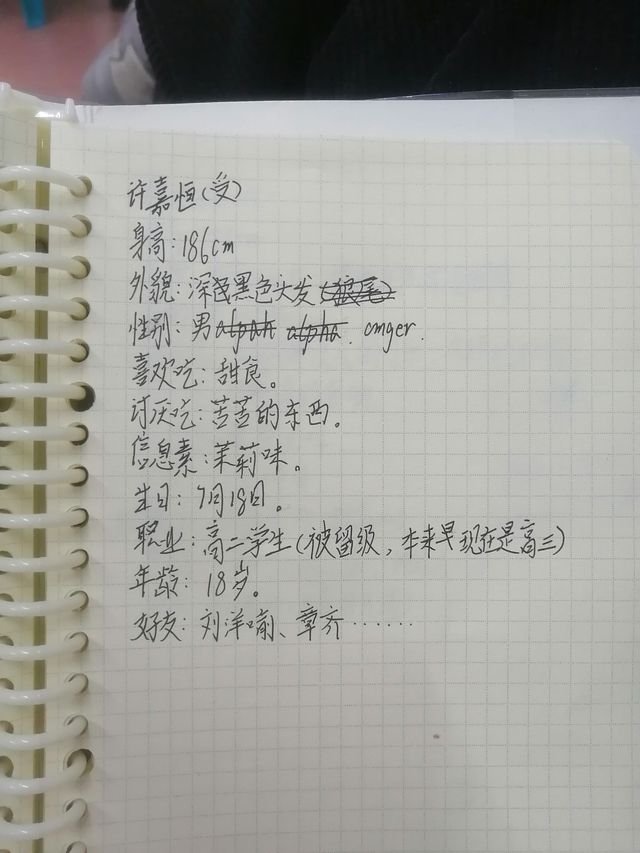 许嘉恒(受)
身高:186cm
外貌:深黑色头发(狼尾)
性别:男alpah alpha. omger.
喜欢吃:甜食。
讨厌吃:苦苦的东西。
信息素:茉莉味。
生日:7月18日。
职业:高二学生(被留级,本来早现在是高三)
年龄:18岁。
好友:刘洋喻、章齐……